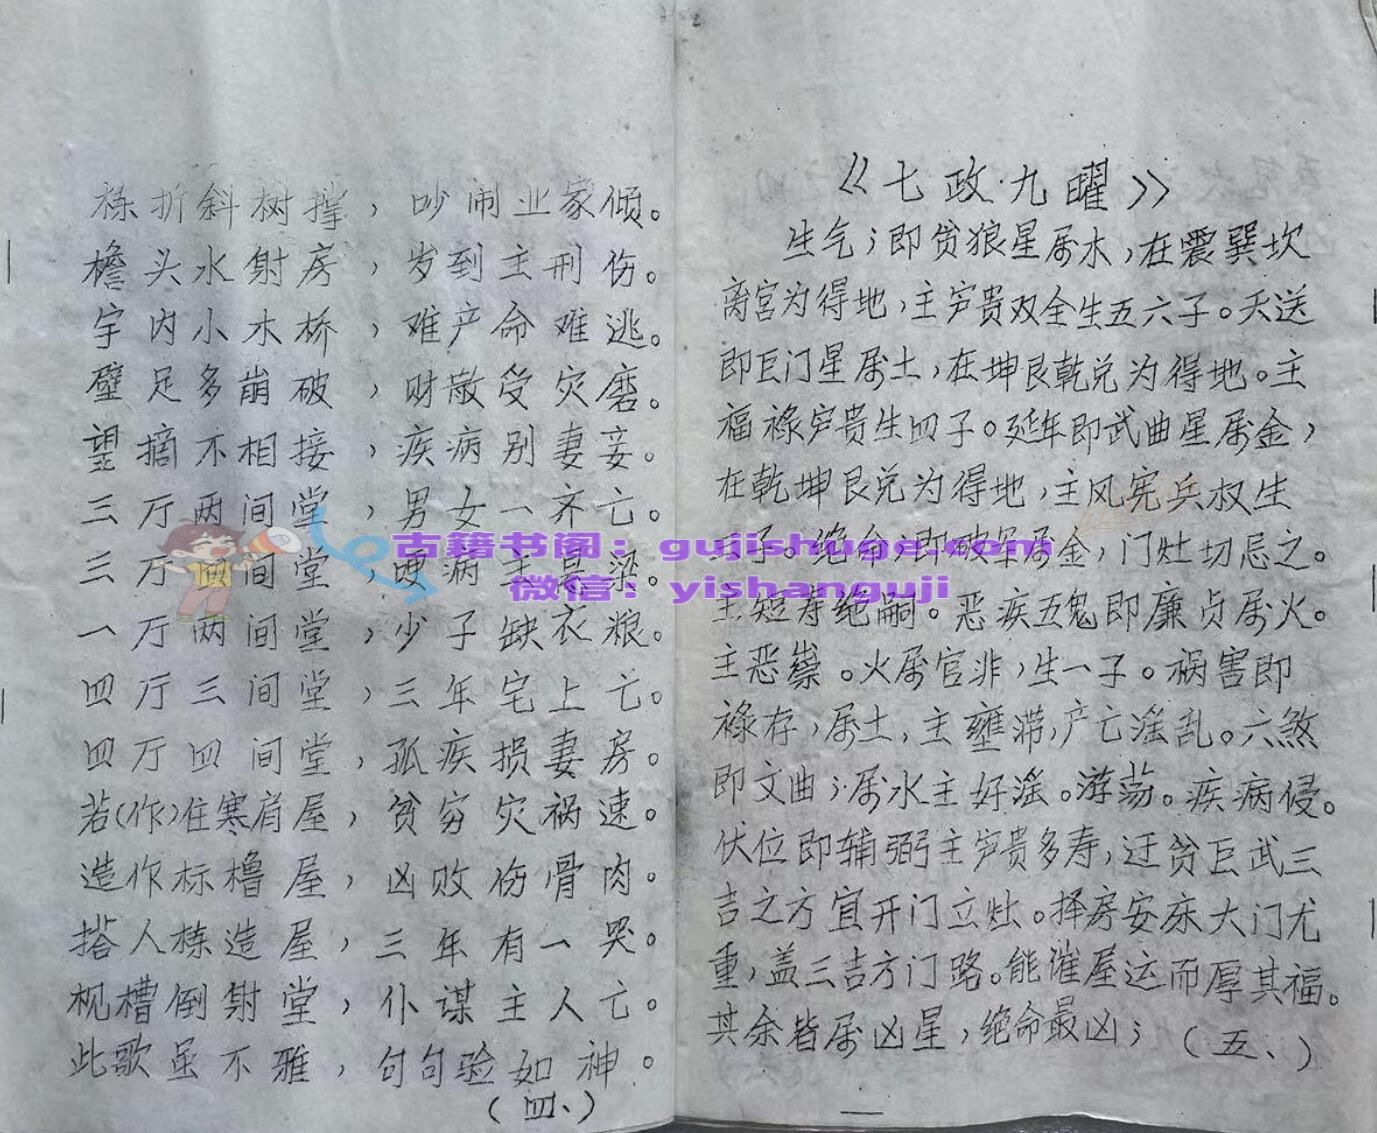 栋折斜树撑，吵闹业家倾。
檐头水射房，岁到主刑伤。
宇内小木桥，难产命难逃。
壁足多崩破，财散受灾磨。
望摘不相接，疾病别妻妾。
三厅两间堂，男女一齐亡。
三厅四间堂，哽病主悬梁。
一厅两间堂，少子缺衣粮。
四厅三间堂，三年宅上亡。
四厅四间堂，孤疾损妻房。
若(作)住寒肩屋，贫穷灾祸速。
造作标橹屋，凶败伤骨肉。
搭人栋造屋，三年有一哭。
枧槽倒射堂，仆谋主人亡。
此歌虽不雅，句句验如神。
(四、)
《七政·九曜》
生气；即贪狼星属木，在震巽坎
离宫为得地，主富贵双全生五六子。天送
即巨门星属土，在坤艮乾兑为得地。主
福禄富贵生四子。延年即武曲星属金，
在乾坤艮兑为得地，主风宪兵权生
子。绝命；即破军属金，门灶切忌之。
主短寿绝嗣。恶疾五鬼即廉贞属火。
主恶崇。火属官非，生一子。祸害即
禄存，属土，主壅滞，产亡淫乱。六煞
即文曲；属水主好淫。游荡。疾病侵。
伏位即辅弼主富贵多寿，迁贪巨武三
吉之方宜开门立灶。择房安床大门尤
重，盖三吉方门路。能催屋运而厚其福。
其余皆属凶星，绝命最凶；
(五、)
古籍书阁：gujishuge.com
微信：yishanguji